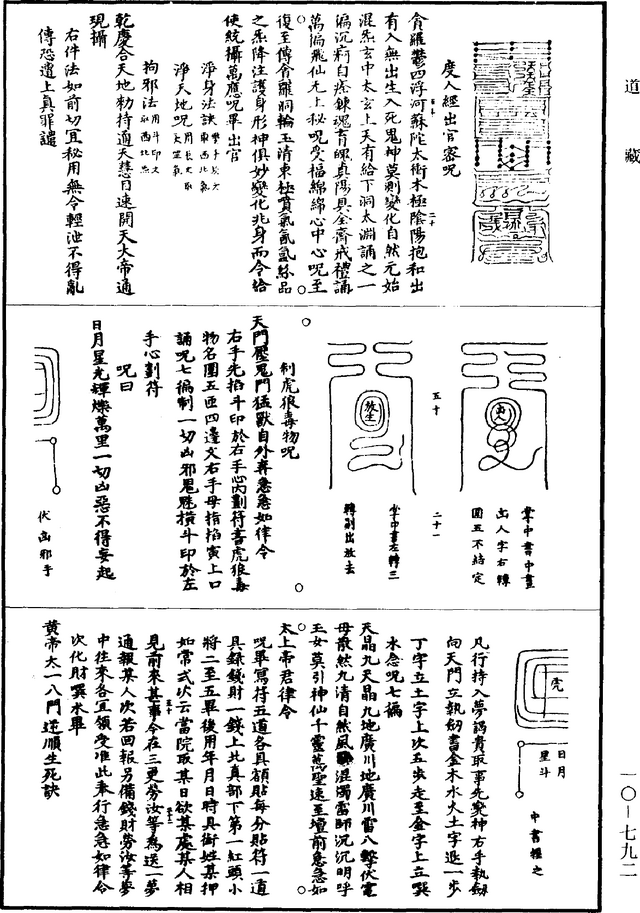 道藏
度人經出官密呪
貪羅鬱四浮河蘇陀太衡木極陰陽抱和出
有入無出生入死鬼神莫測變化自然元始
混炁玄中太玄上天有給下洞太淵誦之一
徧沉痾自痊鍊魂育魄真陽具全齋戒禮誦
萬徧飛仙无上秘呪受福綿綿心中心呪至
復至傳貪羅洞輪玉清東極賁氣氤氳林品
之炁降注護身形神俱妙變化兆身而令給
使統攝萬應呪畢出官
淨身法訣
淨天地呪
拘邪法
乾慶合天地勑持通天慧日速開天大帝通
現攝
右件法如前切宜秘用無令輕泄不得亂
傳恐遭上真罪譴
掌中書中畫
凶人字右轉
圓五不結定
凶人
五十
二十一
放生
掌中書左轉三
轉剔出放去
制虎狼毒物呪
天門壓鬼門猛獸自外奔急急如律令
右手先掐斗印於右手心内劃符書虎狼毒
物名圍五匝四邊文右手母指掐寅上口
誦呪七徧制一切凶邪鬼魅摸斗印於左
手心劃符
呪曰
日月星光輝爍萬里一切凶惡不得妄起
伏凶邪手
虎
日月
星斗
中書握之
凡行持入夢謁貴取事先變神右手執劒
向天門立執劒書金木水火土字退一步
丁字立土字上次五步走至金字上立噀
水念呪七徧
天晶九天晶九地廣川地廣川雷八擊伏電
母散然九清自然風驟混濁雷師沉沉明呼
玉女莫引神仙千靈萬聖速至壇前急急如
太上帝君律令
呪畢寫符五道各具額貼每分貼符一道
具錄錢財一錢上北真部下第一紅頭小
將二至五畢後用年月日時具銜姓某押
如常式次云當院取某日欲某處某人相
見前來某事今在三更勞汝等為送一夢
通報某人次若回報另備錢財勞汝等夢
中往來各宜領受准此奉行急急如律令
次化財噀水畢
黄帝太一八門逆順生死訣
一〇—七九二